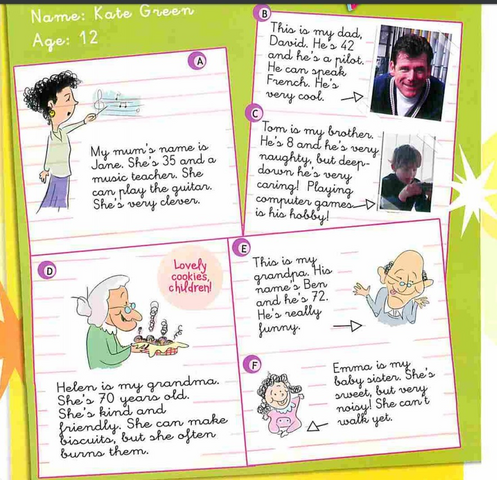 Name: Kate Green
Age: 12
A
My mum's name is
Jane. She's 35 and a
music teacher. She
can play the guitar.
She's very clever.
B
This is my dad,
David. He's 42
and he's a pilot.
He can speak
French. He's
very cool.
C
Tom is my brother.
He's 8 and he's very
naughty, but deep-
down he's very
caring! Playing
computer games
is his hobby!
D
Lovely
cookies,
children!
Helen is my grandma.
She's 70 years old.
She's kind and
friendly. She can make
biscuits, but she often
burns them.
E
This is my
grandpa. His
name's Ben
and he's 72.
He's really
funny.
F
Emma is my
baby sister. She's
sweet, but very
noisy! She can't
walk yet.